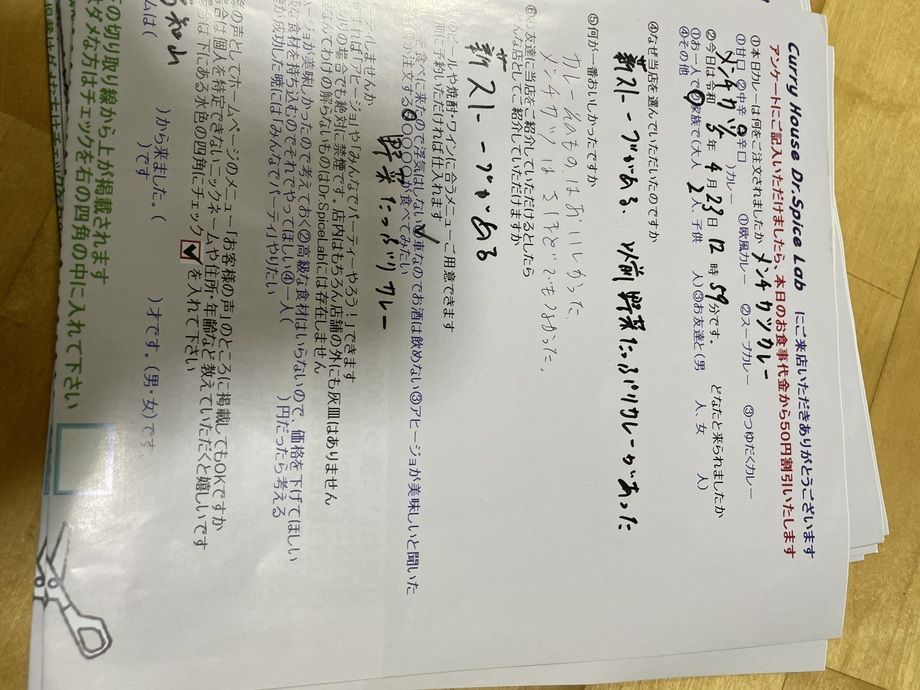 Curry House Dr.Spice Lab にご来店いただきありがとうございます
アンケートにご記入いただけましたら、本日のお食事代金から50円割引いたします
①本日カレーは何をご注文されましたか メンチカツカレー
①甘口 ②中辛 ③辛口 ①欧風カレー ②スープカレー ③つゆだくカレー
④その他 メンチカツ )カレー
②今日は令和 5年 4月 23日 12時 59分です。 どなたと来られましたか
①お一人で ②家族で(大人 2人、子供 人) ③お友達と(男 人、女 人)
④なぜ当店を選んでいただいたのですか
薪ストーブがある、 野菜たっぷりカレーがあった
⑤何が一番おいしかったですか
カレーそのものはおいしかった、
メンチカツは
⑥お友達に当店をご紹介していただけるとしたら
どんな店としてご紹介していただけますか
薪ストーブがある
ビールや焼酎・ワインに合うメニューご用意できます
前に予約いただければ仕入れます
食べに来たので浮気はない ②車なのでお酒は飲めない ③アヒージョが美味しいと聞いた
注文する が食べてみたい
野菜たっぷりカレー
ィしませんか
ければ「アヒージョや「みんなでパーティーやろう!」できます
切りの場合でも絶対に禁煙です。店内はもちろん店舗の外にも灰皿はありません
なんてわけの解らないものはDr.SpiceLabには存在しません
ージョが美味しかったので考えておく ②高級な食材はいらないので、価格を下げてほしい
食材を持ち込むのでそれでやってほしい ④一人( )円だったら考える
が成功した暁には「みんなでパーティ」やりたい
様の声としてホームページのメニュー「お客様の声」のところに掲載してもOKですか
場合は個人を特定できないニックネームや住所・年齢など教えていただくと嬉しいです
合は下にある水色の四角にチェック ☑ を入れて下さい
ムは( )から来ました。( )才です。(男・女)です
)です
の切り取り線から上が掲載されます
ダメな方はチェックを右の四角の中に入れて下さい